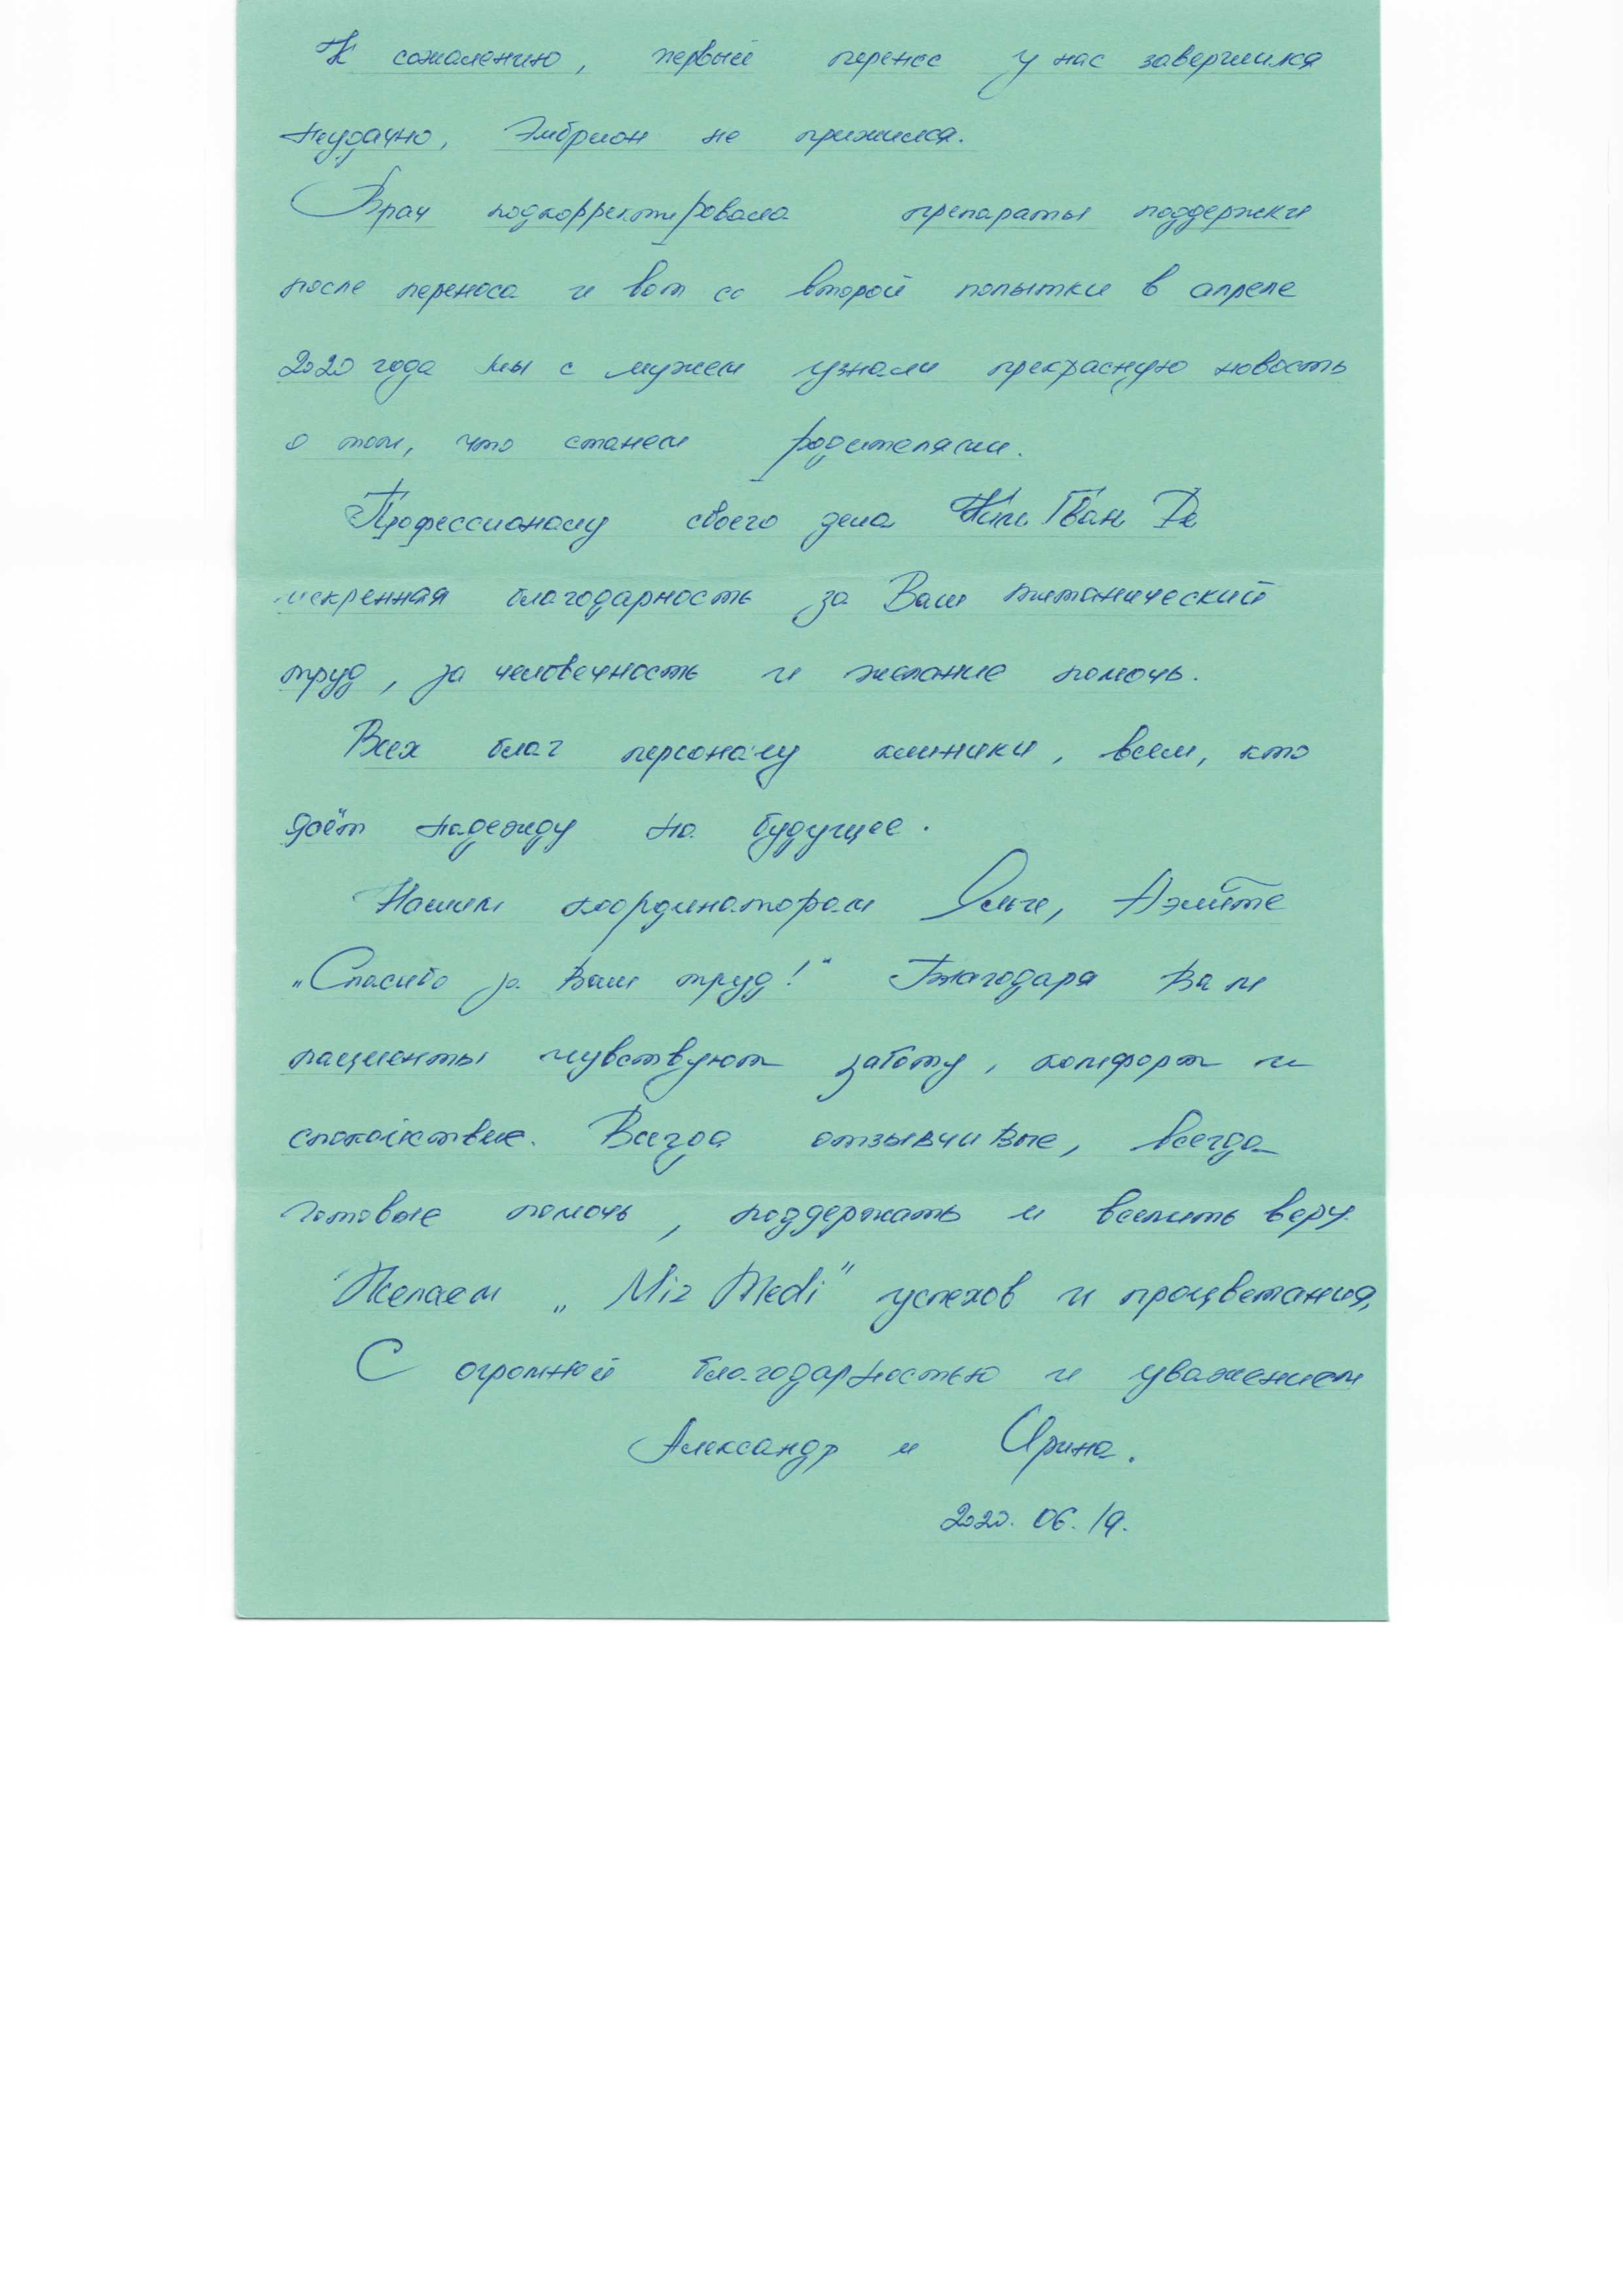 К сожалению, первый перенос у нас завершился
неудачно, Эмбрион не прижился.
Врач подкорректировала препараты поддержки
после переноса и вот со второй попытки в апреле
2020 года мы с мужем узнали прекрасную новость
о том, что станем родителями.
Профессионалу своего дела Ким Гван Ре
искренняя благодарность за Ваш титанический
труд, за человечность и желание помочь.
Всех благ персоналу клиники, всем, кто
даёт надежду на будущее.
Нашим координаторам Ольге,
„Спасибо за Ваш труд!" Благодаря Вам
пациенты чувствуют заботу, комфорт и
спокойствие. Всегда отзывчивые, всегда
готовые помочь, поддержать и вселить веру.
Желаем „Miz Medi" успехов и процветания,
С огромной благодарностью и уважением
Александр и Ирина.
2020. 06. 19.